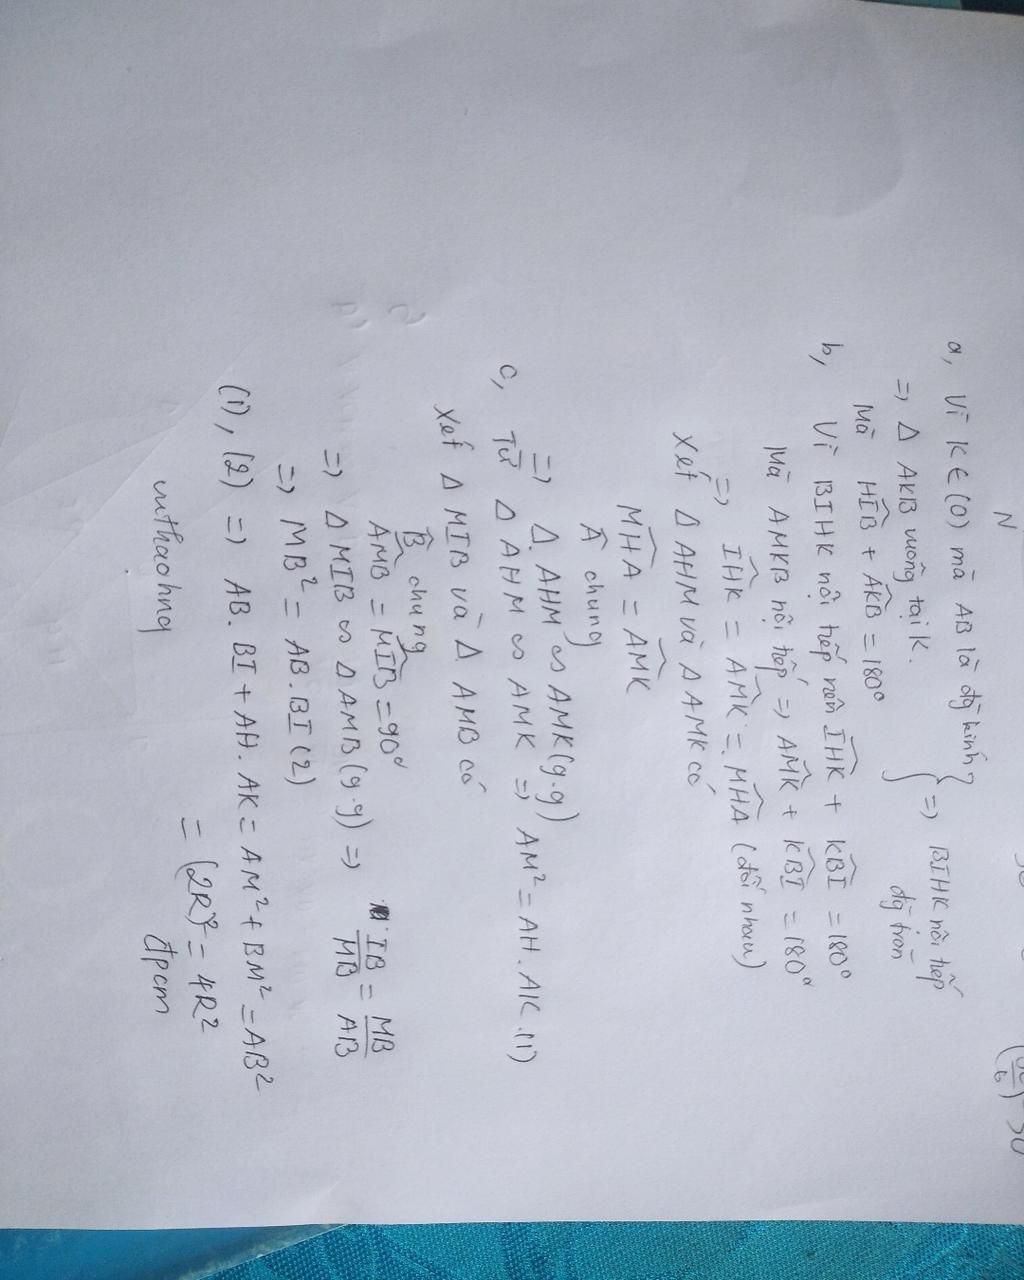 N
a, Vì K∈(O) mà AB là đg kính }
=> Δ AKB vuông tại K. } => BIHK nội tiếp
Mà HIB + AKB = 180° đg tròn
b, Vì BIHK nội tiếp nên IHK + KBI = 180°
Mà AMKB nội tiếp => AMK + KBI = 180°
=> IHK = AMK = MHA (đối nhau)
Xét Δ AHM và Δ AMK có
MHA = AMK
A chung
=> Δ. AHM ∽ AMK (g.g)
c, Từ Δ AHM ∽ AMK => AM² = AH. AK.(1)
Xét Δ MIB và Δ AMB có
B chung
AMB = MIB = 90°
=> Δ MIB ∽ Δ AMB (g.g) => IB/MB = MB/AB
=> MB² = AB.BI (2)
(1), (2) => AB. BI + AH. AK = AM² + BM² = AB²
= (2R)² = 4R²
vuthaohng đpcm